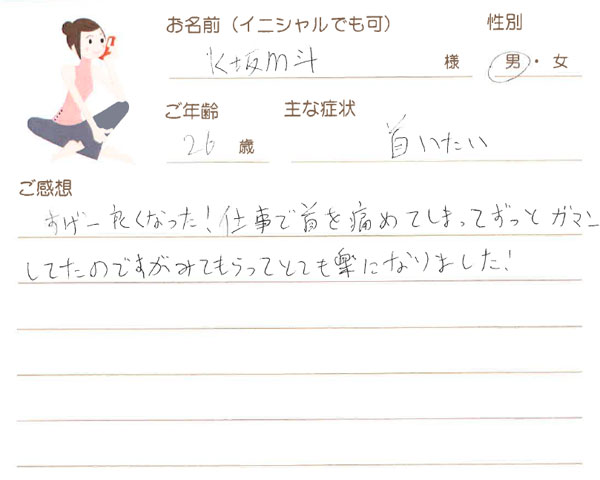 お名前(イニシャルでも可) 性別
坂 斗 様 男・女
ご年齢 主な症状
26 歳 首いたい
ご感想
すげー良くなった!仕事で首を痛めてしまってずっとガマン
してたのですがみてもらってとても楽になりました!